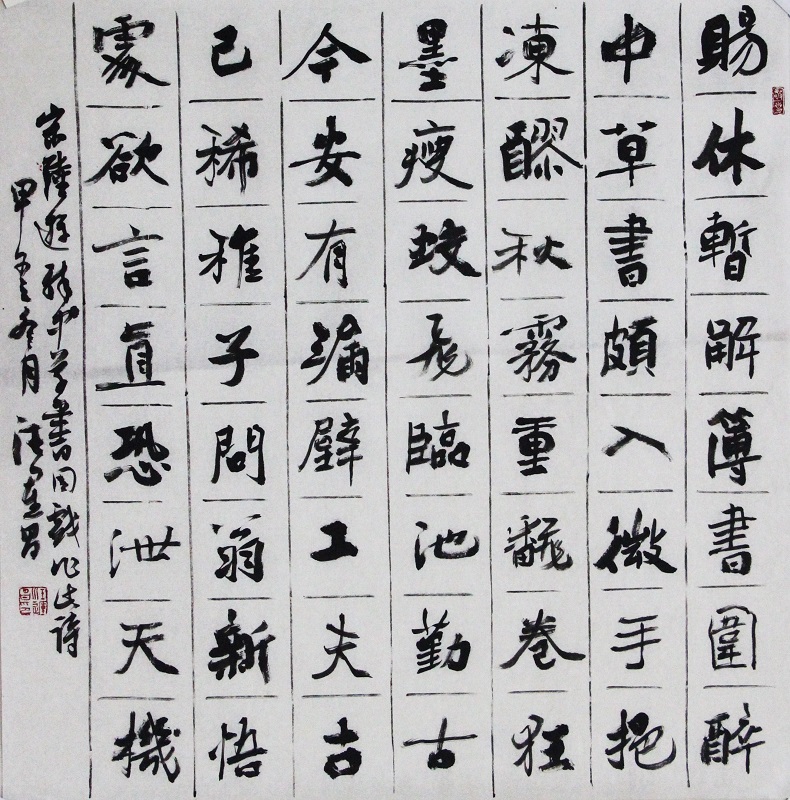 賜休暫解簿書圍醉
中草書頗入微手挹
凍醪秋霧重飜卷狂
墨瘦蛟飛臨池勤古
今安有漏壁工夫古
已稀稚子問翁新悟
處欲言直恐泄天機
宋陸游醉中草書因戲作此詩
甲午冬月